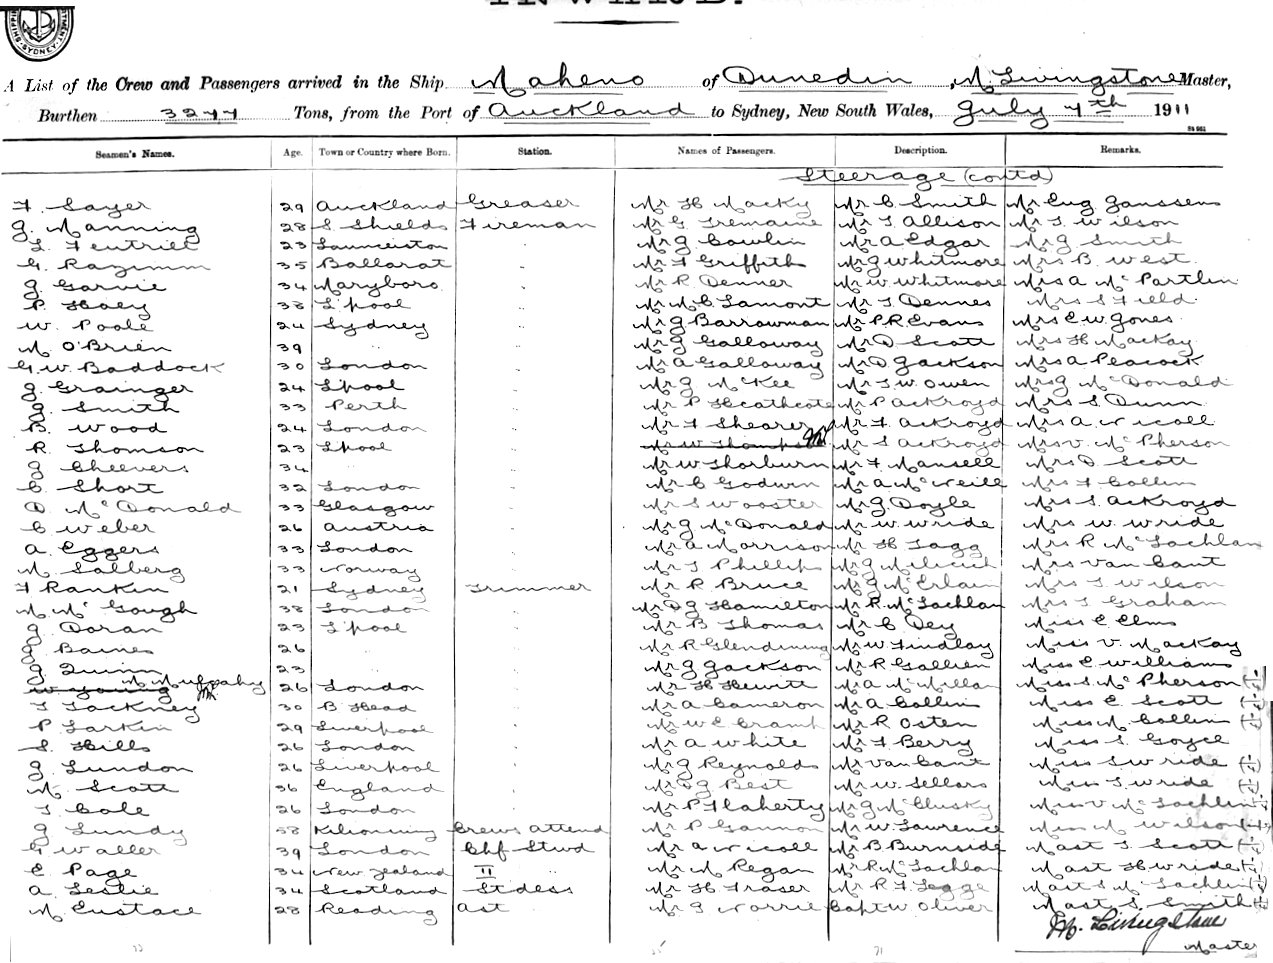 A List of the Crew and Passengers arrived in the Ship Maheno of Dunedin, M. Livingstone Master,
Burthen Tons, from the Port of Auckland to Sydney, New South Wales, July 7th 1911
Seamen's Names. Age. Town or Country where Born. Station. Names of Passengers. Description. Remarks.
Steerage (contd)
F. Sayer 29 Auckland Greaser Mr H Macky Mr C Smith Mr Eug Janssens
J. Manning 28 S. Shields Fireman Mr G Tremaine Mr T Allison Mr T. Wilson
23 Launceston " Mr J Cowlin Mr A Edgar Mr J Smith
35 Ballarat " Mr F Griffith Mr J Whitmore Mrs B. West
J. Garvie 34 Maryboro " Mr R Denner Mr W Whitmore Mrs A McPartlin
P. Hoey 38 L'pool " Mr M C Lamont Mr T Dennes Mrs S Field
W. Poole 24 Sydney " Mr J Barrowman Mr P.R. Evans Mrs E.W. Jones
M. O'Brien 39 " " Mr J Galloway Mr D Scott Mrs H Mackay
G.W. Baddock 30 London " Mr A Galloway Mr D Jackson Mrs A Peacock
J. Grainger 24 L'pool " Mr J McKee Mr T.W. Owen Mrs J McDonald
J. Smith 33 Perth " Mr P Heathcote Mr P Ackroyd Mrs S. Dunn
B. Wood 24 London " Mr F Shearer Mr F. Ackroyd Mrs A Nicoll
R. Thomson 23 L'pool " Mr W Thompson Mr S Ackroyd Mrs V. McPherson
J Cheevers 34 " " Mr W Thorburn Mr F Mansell Mrs D Scott
C. Short 32 London " Mr C Godwin Mr A McNeill Mrs F Collin
D McDonald 33 Glasgow " Mr S Wooster Mr J Doyle Mrs S. Ackroyd
C Weber 26 Austria " Mr J McDonald Mr W Wride Mrs W. Wride
A. Eggers 33 London " Mr A Morrison Mr H Tagg Mrs R McLachlan
M. Salberg 33 Norway " Mr T Phillips Mr J Mrs Van Cant
F Rankin 21 Sydney Trimmer Mr R Bruce Mr J Mrs T Wilson
M McGough 38 London " Mr D J Hamilton Mr R. McLachlan Mrs T Graham
J. Doran 23 L'pool " Mr B Thomas Mr C Dey Miss E Elms
J Baines 26 " " Mr R Glendining Mr W Findlay Miss V. Mackay
J Quinn 23 " " Mr J Jackson Mr R Gallien Miss E Williams
W Young M Murpahy 26 London " Mr H Hewitt Mr A McMillan Miss S McPherson
T Tackney 30 B Head " Mr A Cameron Mr A Collin Miss E Scott
P Larkin 29 Liverpool " Mr W E Cramp Mr R Osten Miss M Collin
S. Hills 26 London " Mr A White Mr F Berry Miss S. Goyce
J. Lundon 26 Liverpool " Mr J Reynolds Mr Van Cant Miss S Wride
M. Scott 36 England " Mr D J Best Mr W Sellars Miss T Wride
T Cole 26 London " Mr P Flaherty Mr J McClusky Miss V McLachlin
J Lundy 38 Crews attend Mr P Gannon Mr W Lawrence Miss M Wilson
G Waller 39 London Chf Stwd Mr A Nicoll Mr B Burnside Mast T Scott
E Page 34 New Zealand II Mr M Regan Mr R McLachlan Mast H Wride
A Leslie 34 Scotland Stdess Mr H Fraser Mr R F Legge Mast S McLachlin
M Eustace 28 Reading Ast Mr T Norrie Capt W Oliver Mast S. Smith
M. Livingstone
Master